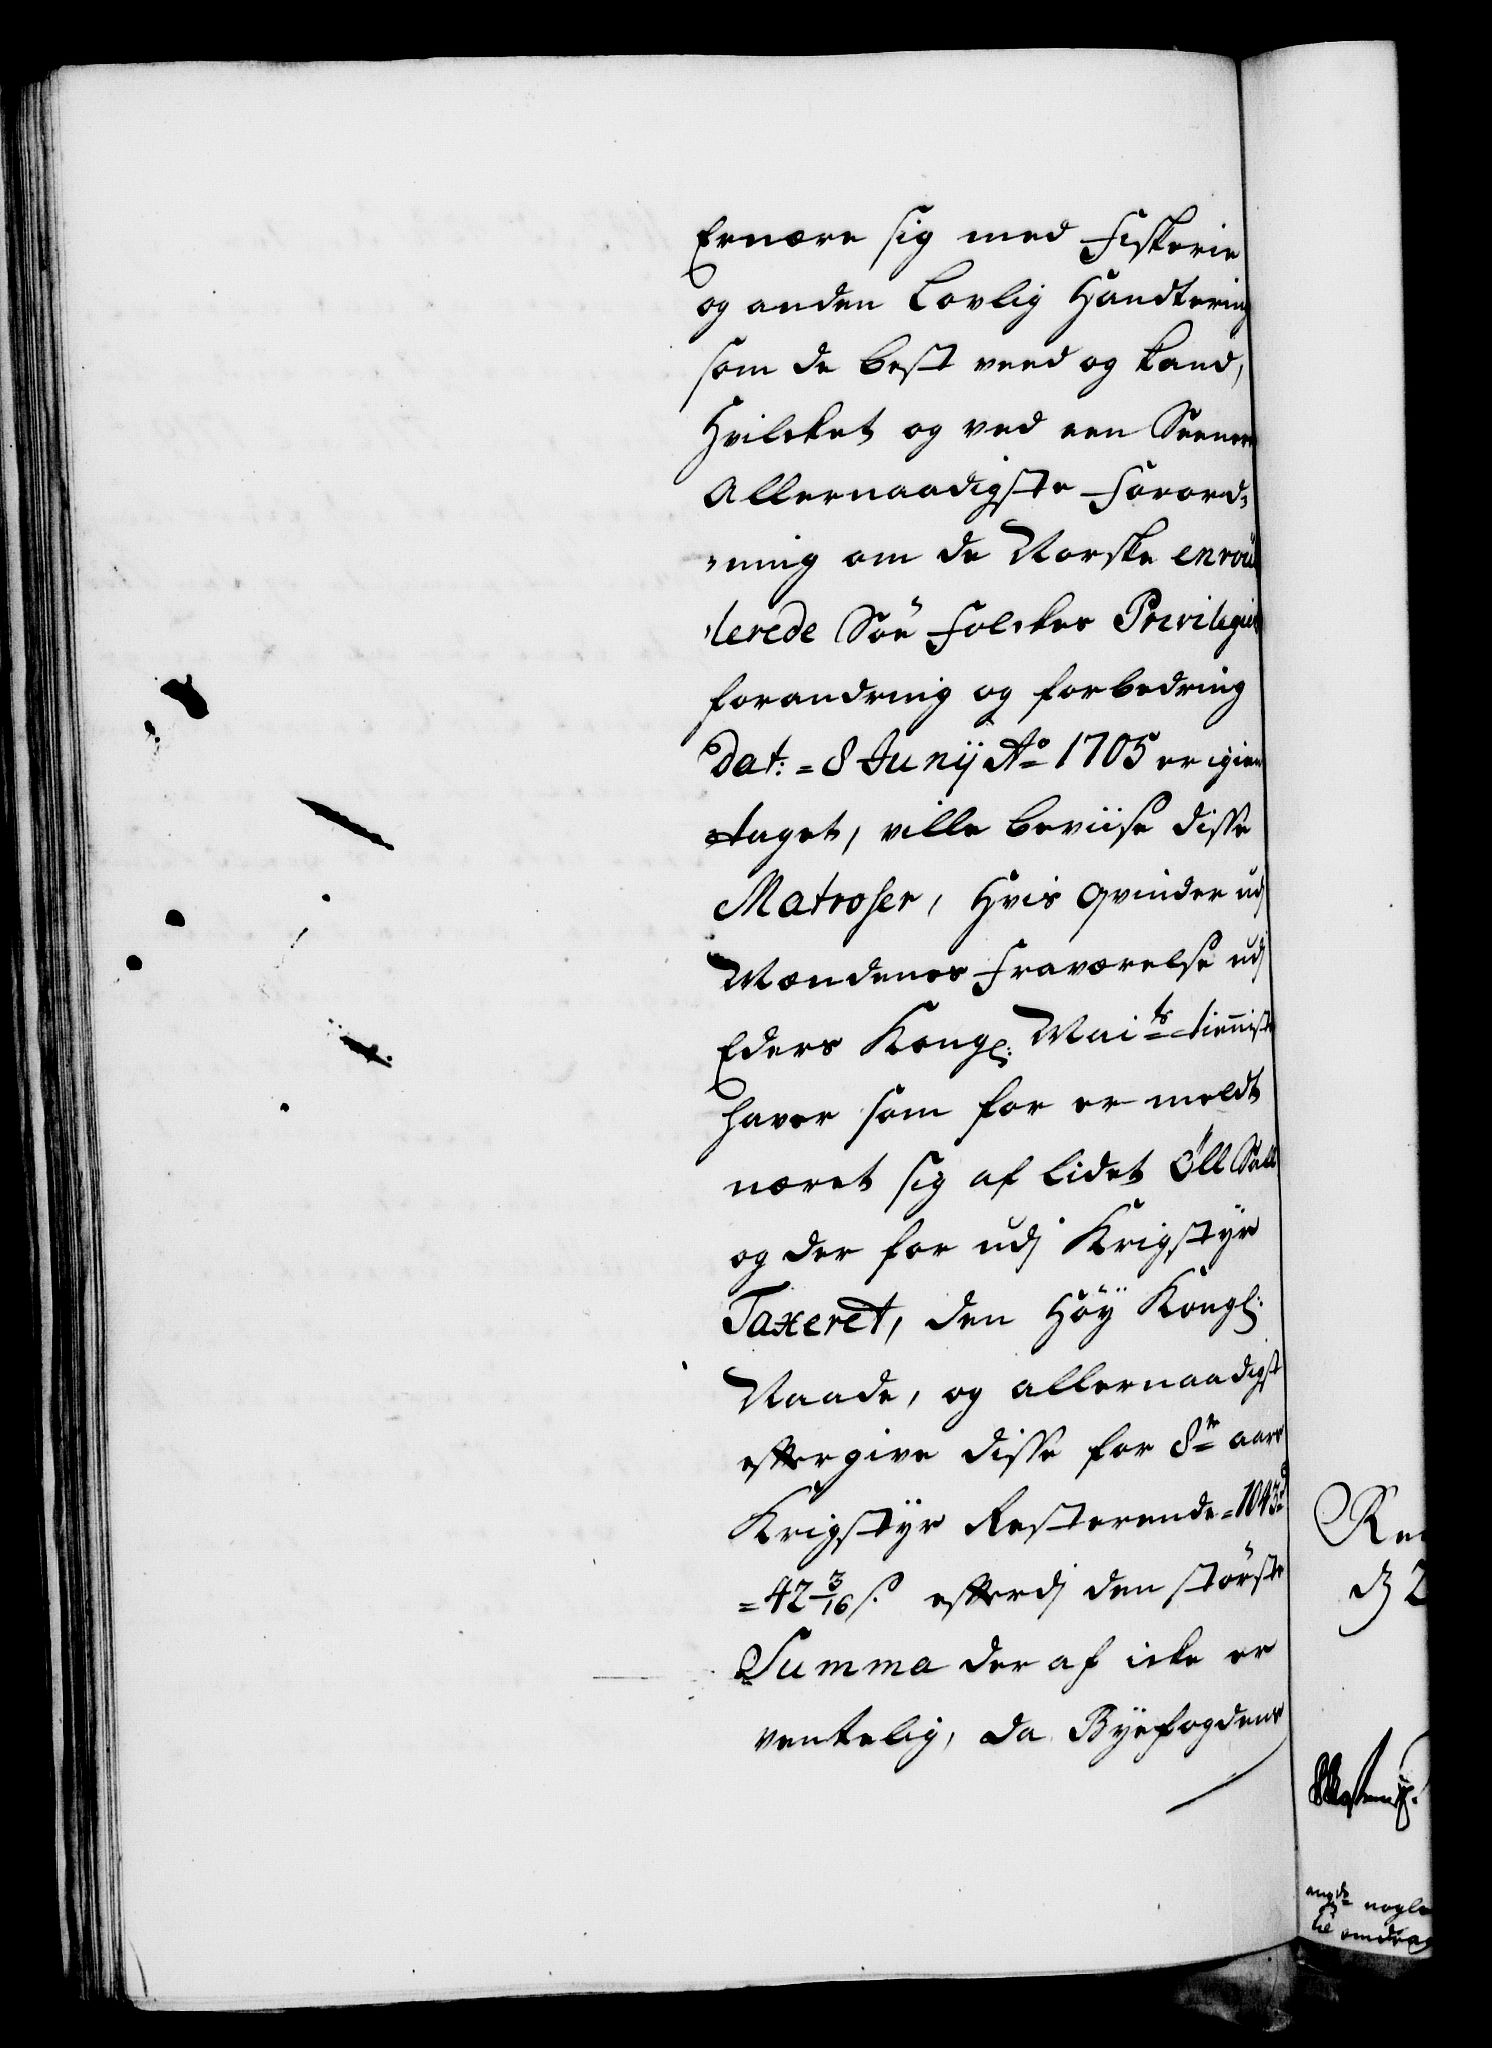 Ernære sig med Fiskerie
og anden Lovlig Handtering
som de best veed og kand,
Hvilcket og ved een Seenere
Allernaadigste Forord-
-ning om de Norske enroul
-lerede Søe Folckes Privilegiers
forandring og forbedring
Dat: = 8 Junij Ao 1705 er igien
taget, ville beviise disse
Matroser, Hvis Qvinder udj
Mændenes Fraværelse udj
Eders Kongl: Maits tienniste
haver som for er meldt
næret sig af lidet Øll Sall
og der for udj Krigstyr
Taxeret, den Høy Kongl:
Naade, og allernaadigst
effter give disse for 8te aars
Krigstyr Resterende = 1043 rd
= 42 3/16 s. efferdj den største
Summa der af icke er
ventelig, da Byefogdens
d 2
nogle